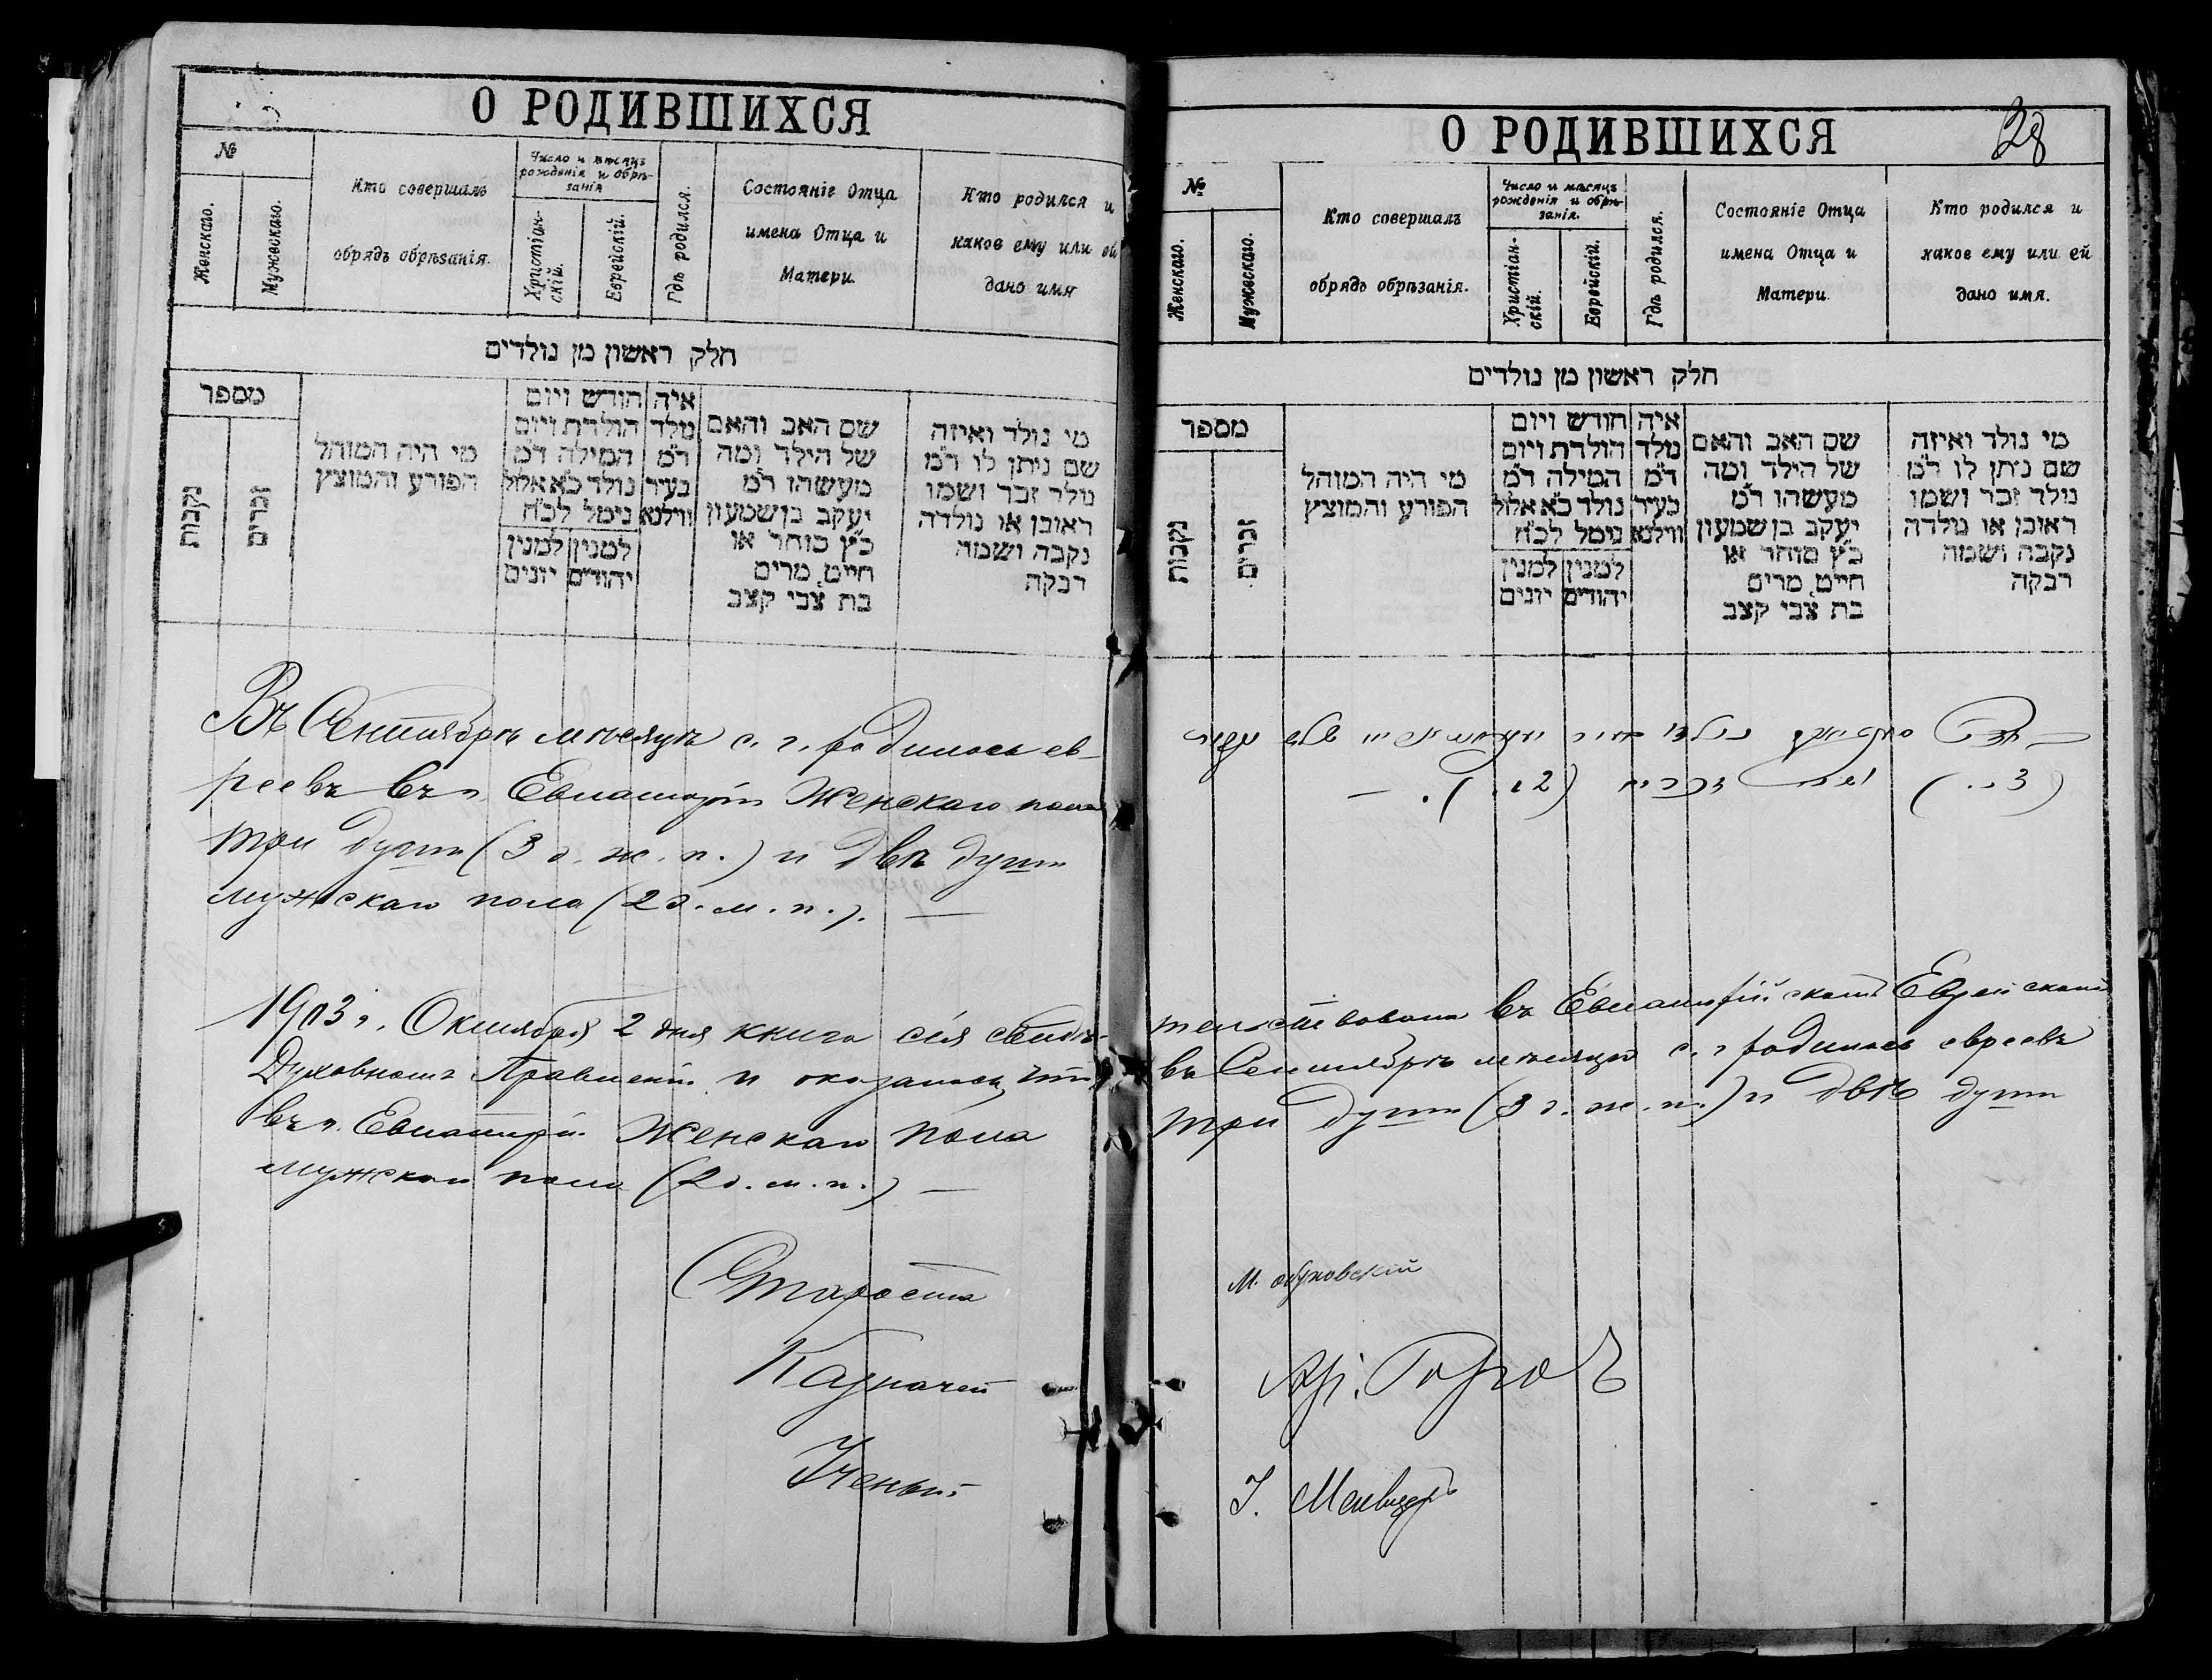 О РОДИВШИХСЯ
№
Женскаго.
Мужескаго.
Кто совершалъ
обрядъ обрѣзанія.
Число и мѣсяцъ
рожденія и обрѣ-
занія
Христіан-
скій.
Еврейскій.
Гдѣ родился.
Состояніе Отца
имена Отца и
Матери.
Кто родился и
какое ему или ей
дано имя
חלק ראשון מן נולדים
מספר
נקבות
זכרים
מי היה המוהל
הפורע והמוצץ
חודש ויום
הולדת ויום
המילה ד״מ
נולד כ״א אלול
נימל לכ״ח
למנין למנין
יהודים יונים
איה
נולד
ד״מ
בעיר
ווילנא
שם האב והאם
של הילד ומה
מעשהו ד״מ
יעקב בן שמעון
כ״ץ סוחר או
חייט, מרים
בת צבי קצב
מי נולד ואיזה
שם ניתן לו ד״מ
נולד זכר ושמו
ראובן או נולדה
נקבה ושמה
רבקה
Въ Сентябрѣ мѣсяцѣ с. г. родилось ев-
реевъ въ г. Евпаторіи Женскаго пола
три души (3 д. ж. п.) и двѣ души
мужскаго пола (2 д. м. п.). —
1903 г. Октября 2 дня книга сія свидѣ-
Духовномъ Правленіи и оказалось, что
въ г. Евпаторіи Женскаго пола
мужскаго пола (2 д. м. п.) —
Староста
Казначей
Ученый
О РОДИВШИХСЯ
28
№
Женскаго.
Мужескаго.
Кто совершалъ
обрядъ обрѣзанія.
Число и мѣсяцъ
рожденія и обрѣ-
занія.
Христіан-
скій.
Еврейскій.
Гдѣ родился.
Состояніе Отца
имена Отца и
Матери.
Кто родился и
какое ему или ей
дано имя.
חלק ראשון מן נולדים
מספר
נקבות
זכרים
מי היה המוהל
הפורע והמוצץ
חודש ויום
הולדת ויום
המילה ד״מ
נולד כ״א אלול
נימל לכ״ח
למנין למנין
יהודים יונים
איה
נולד
ד״מ
בעיר
ווילנא
שם האב והאם
של הילד ומה
מעשהו ד״מ
יעקב בן שמעון
כ״ץ סוחר או
חייט, מרים
בת צבי קצב
מי נולד ואיזה
שם ניתן לו ד״מ
נולד זכר ושמו
ראובן או נולדה
נקבה ושמה
רבקה
тельствована въ Евпаторійскомъ Еврейскомъ
въ Сентябрѣ мѣсяцѣ с. г. родилось евреевъ
три души (3 д. ж. п.) и двѣ души